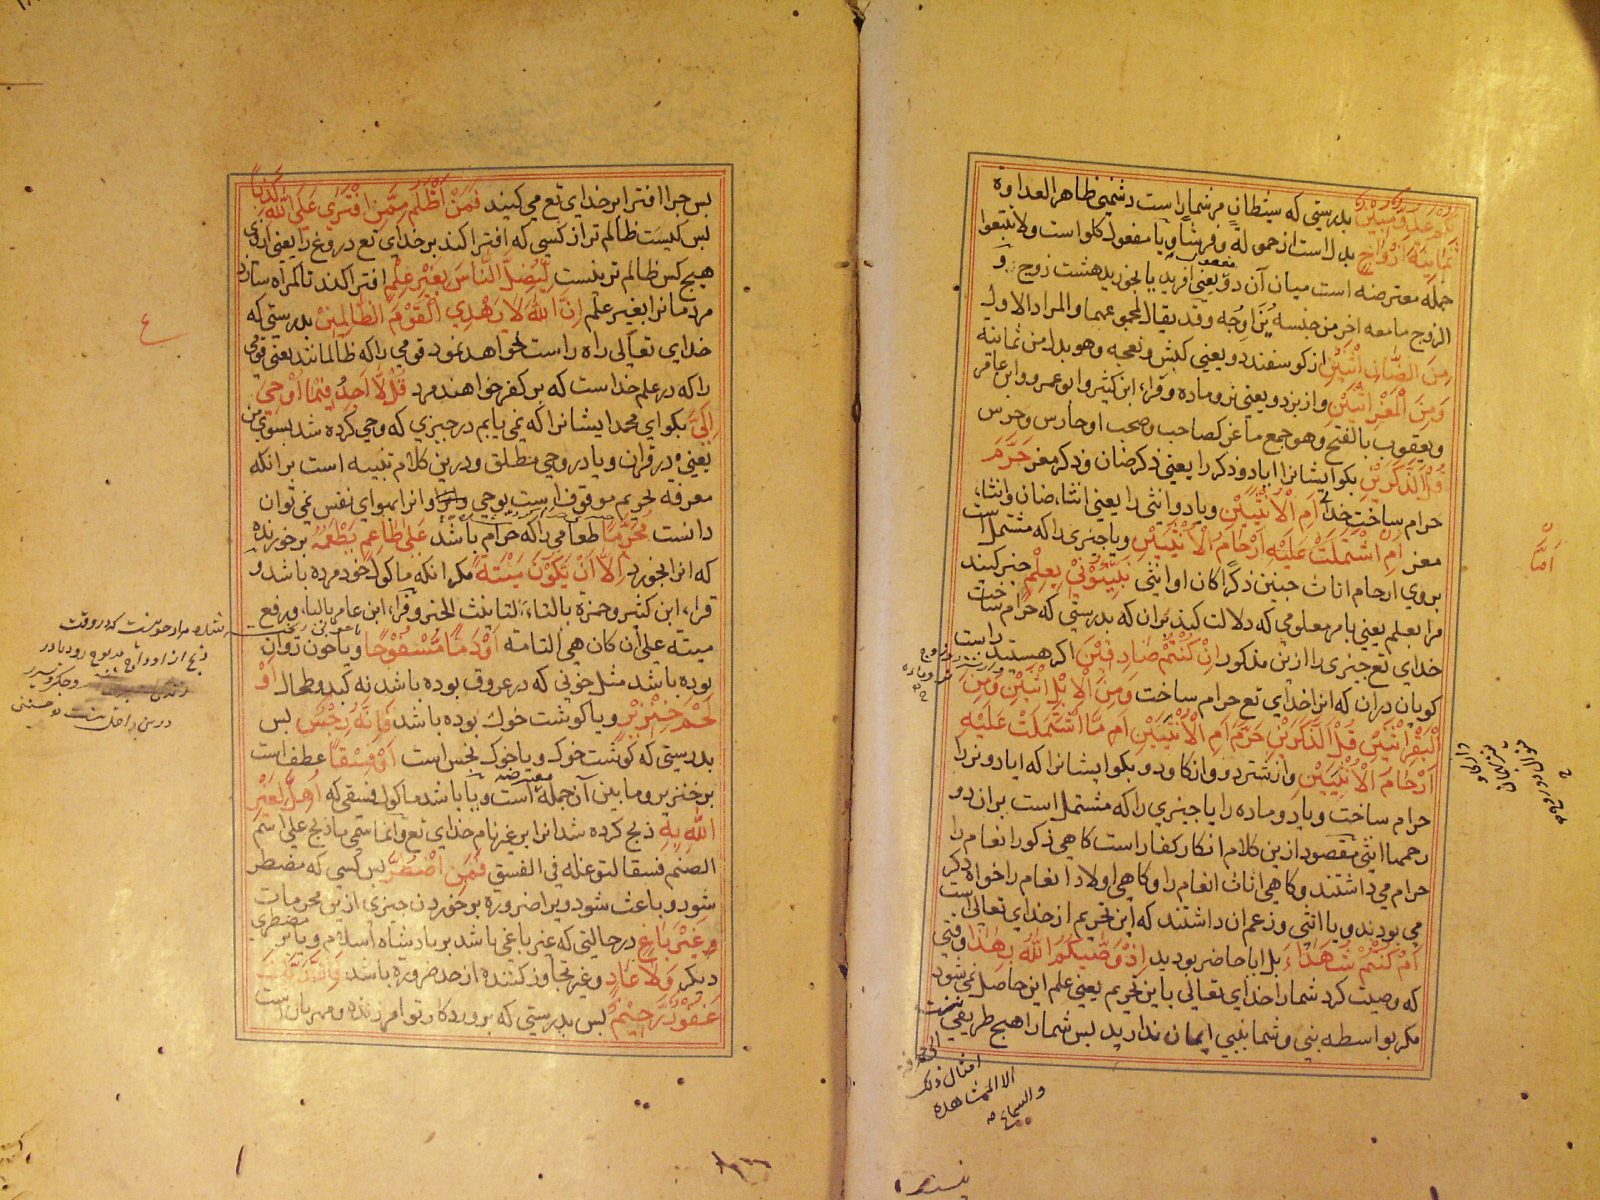 لَكُمْ عَدُوٌّ مُبِينٌ بدرستی که شیطان مر شما را است دشمنی ظاهر العداوة
ثَمَانِيَةَ أَزْوَاجٍ بدل است از حموله و فرشا و یا مفعول کلوا است ولا تتبعوا
جمله معترضه است میان آن دو یعنی افرید یا بخورید هشت زوج و
الزوج ما معه اخر من جنسه یزاوجه وقد یقال لمجموعهما والمراد الاول
مِنَ الضَّأْنِ اثْنَيْنِ از کوسفند دو یعنی کبش و نعجه وهو بدل من ثمانیة
وَمِنَ الْمَعْزِ اثْنَيْنِ و از بز دو یعنی نر و ماده و قراء ابن کثیر وابو عمرو وابن عامر
ویعقوب بالفتح وهو جمع ماعز کصاحب وصحب او حارس وحرس
قُلْ آلذَّكَرَيْنِ بکو ایشانرا ایا دو ذکر را یعنی ذکر ضان و ذکر معز حَرَّمَ
حرام ساخت خدا أَمِ الْأُنْثَيَيْنِ و یا دو انثی را یعنی انثاء ضان وانثاء
معز أَمَّا اشْتَمَلَتْ عَلَيْهِ أَرْحَامُ الْأُنْثَيَيْنِ و یا چیزی را که مشتمل است
بروی ارحام اناث جنین ذکرا کان او انثی نَبِّئُونِي بِعِلْمٍ خبر کنید
مرا بعلم یعنی بامر معلومی که دلالت کند بران که بدرستی که حرام ساخت
خدای تع چیزی را ازین مذکور إِنْ كُنْتُمْ صَادِقِينَ اکر هستید راست
کویان دران که انرا خدای تع حرام ساخت وَمِنَ الْإِبِلِ اثْنَيْنِ وَمِنَ
الْبَقَرِ اثْنَيْنِ قُلْ آلذَّكَرَيْنِ حَرَّمَ أَمِ الْأُنْثَيَيْنِ أَمَّا اشْتَمَلَتْ عَلَيْهِ
أَرْحَامُ الْأُنْثَيَيْنِ و از شتر دو و از کاو دو بکو ایشانرا که ایا دو نر را
حرام ساخت و یا دو ماده را یا چیزی را که مشتمل است بران دو
رحم انثی مقصود ازین کلام انکار کفار است کاهی ذکور انعام را
حرام می داشتند و کاهی اناث انعام را و کاهی اولاد انعام را خواه ذکر
می بودند و یا انثی و زعم ان داشتند که این تحریم از خدای تعالی است
أَمْ كُنْتُمْ شُهَدَاءَ بل ایا حاضر بودید إِذْ وَصَّاكُمُ اللَّهُ بِهَذَا وقتی
که وصیت کرد شما را خدای تعالی باین تحریم یعنی علم این حاصل نمی شود
مکر بواسطه نبی و شما بنبی ایمان ندارید پس شما را هیچ طریقی نیست
امثال ذلک
الا المشاهدة
والسماع
پس چرا افترا بر خدای تع می کنید فَمَنْ أَظْلَمُ مِمَّنِ افْتَرَى عَلَى اللَّهِ كَذِبًا
پس کیست ظالم تر از کسی که افترا کند بر خدای تع دروغ را یعنی ازوی
هیچ کس ظالم تر نیست لِيُضِلَّ النَّاسَ بِغَيْرِ عِلْمٍ افترا کند تا کمراه سازد
مردمانرا بغیر علم إِنَّ اللَّهَ لَا يَهْدِي الْقَوْمَ الظَّالِمِينَ بدرستی که
خدای تعالی راه راست نخواهد نمود قومی را که ظالمانند یعنی قومی
را که در علم خدا است که بر کفر خواهند مرد قُلْ لَا أَجِدُ فِيمَا أُوحِيَ
إِلَيَّ بکو ای محمد ایشانرا که نمی یابم در چیزی که وحی کرده شد بسوی من
یعنی در قران و یا در وحی مطلق و درین کلام تنبیه است برانکه
معرفه تحریم موقوف است بوحی و انرا بهوای نفس نمی توان
دانست مُحَرَّمًا طعامی را که حرام باشد عَلَى طَاعِمٍ يَطْعَمُهُ بر خورنده
که انرا بخورد إِلَّا أَنْ يَكُونَ مَيْتَةً مکر انکه ماکول خود مرده باشد و
قراء ابن کثیر و حمزة بالتاء لتانیث الخبر و قراء ابن عامر بالیاء و رفع
میتة علی أن کان هی التامة أَوْ دَمًا مَسْفُوحًا و یا خون روان
بوده باشد مثل خونی که در عروق بوده باشد نه کبد و طحال أَوْ
لَحْمَ خِنْزِيرٍ و یا کوشت خوک بوده باشد فَإِنَّهُ رِجْسٌ پس
بدرستی که کوشت خوک و یا خوک نجس است أَوْ فِسْقًا عطف است
بر خنزیر و ما بین آن جمله معترضه است و یا باشد ماکول فسقی که أُهِلَّ لِغَيْرِ
اللَّهِ بِهِ ذبح کرده شد انرا بر غیر نام خدای تع وانما سمی ما ذبح علی اسم
الصنم فسقا لتوغله فی الفسق فَمَنِ اضْطُرَّ پس کسی که مضطر
شود و باعث شود ویرا ضرورة بر خوردن چیزی ازین محرمات
غَيْرَ بَاغٍ در حالتی که غیر باغی باشد بر بادشاه اسلام و یا بر مضطری
دیکر وَلَا عَادٍ و غیر تجاوز کننده از حد ضرورة باشد فَإِنَّ رَبَّكَ
غَفُورٌ رَحِيمٌ پس بدرستی که پروردکار تو امرزنده و مهربان است